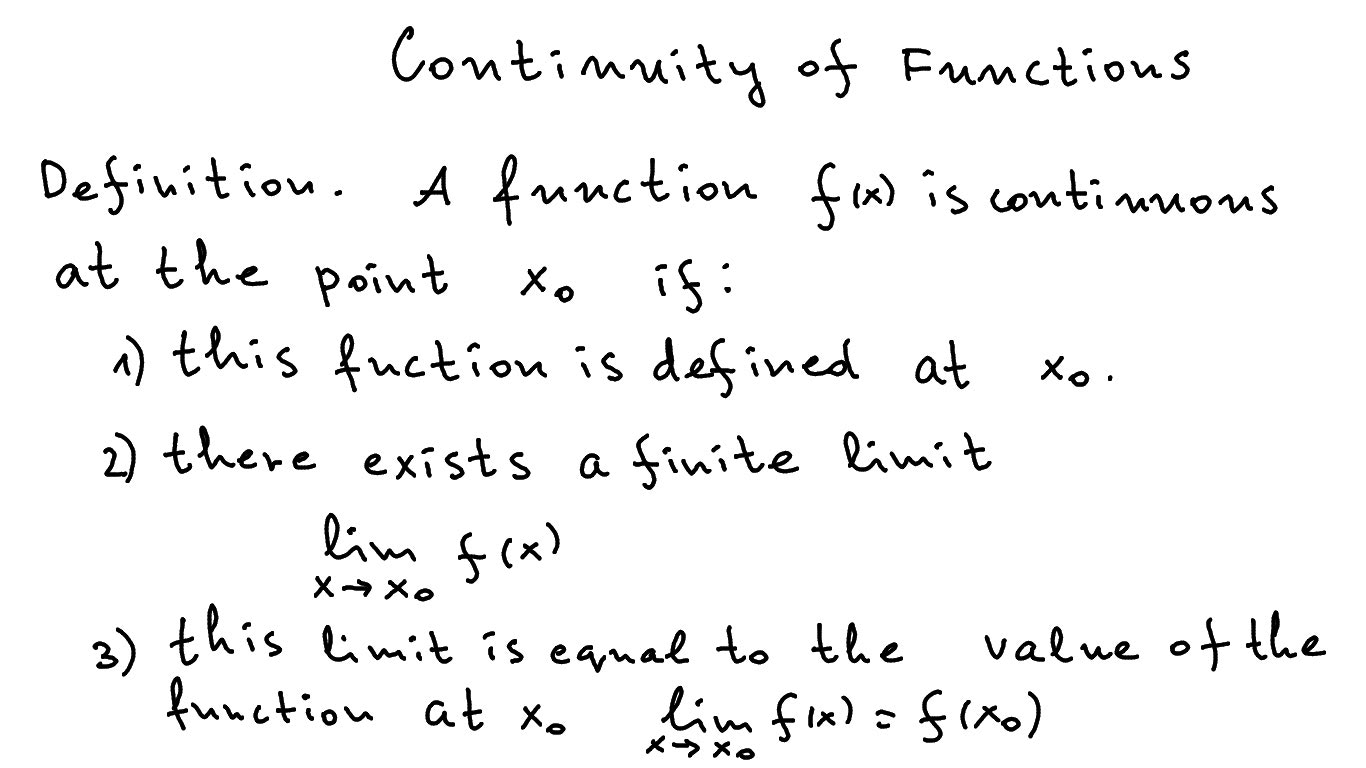 Continuity of Functions
Definition. A function f(x) is continuous
at the point x₀ if:
1) this fuction is defined at x₀.
2) there exists a finite limit
lim f(x)
x→x₀
3) this limit is equal to the value of the
function at x₀ lim f(x) = f(x₀)
x→x₀